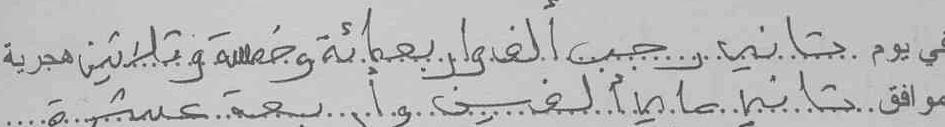 في يوم ثاني رجب ألف واربعمائة وخمسة وثلاثين هجرية
موافق ثاني ماي ألفين وأربعة عشرة